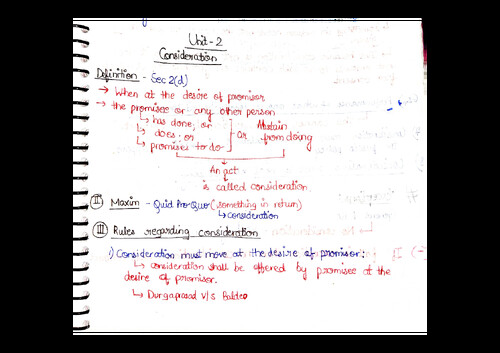 Unit-2
Consideration
Definition - Sec 2(d)
→ When at the desire of promisor
→ the promisee or any other person
↳ has done, or
↳ does or
↳ promises to do
or
Abstain
from doing
An act
is called consideration
(II) Maxim - Quid Pro Quo (something in return)
↳ consideration
(III) Rules regarding consideration
1) Consideration must move at the desire of promisor:
↳ consideration shall be offered by promisee at the
desire of promisor.
↳ Durgaprasad v/s Baldeo